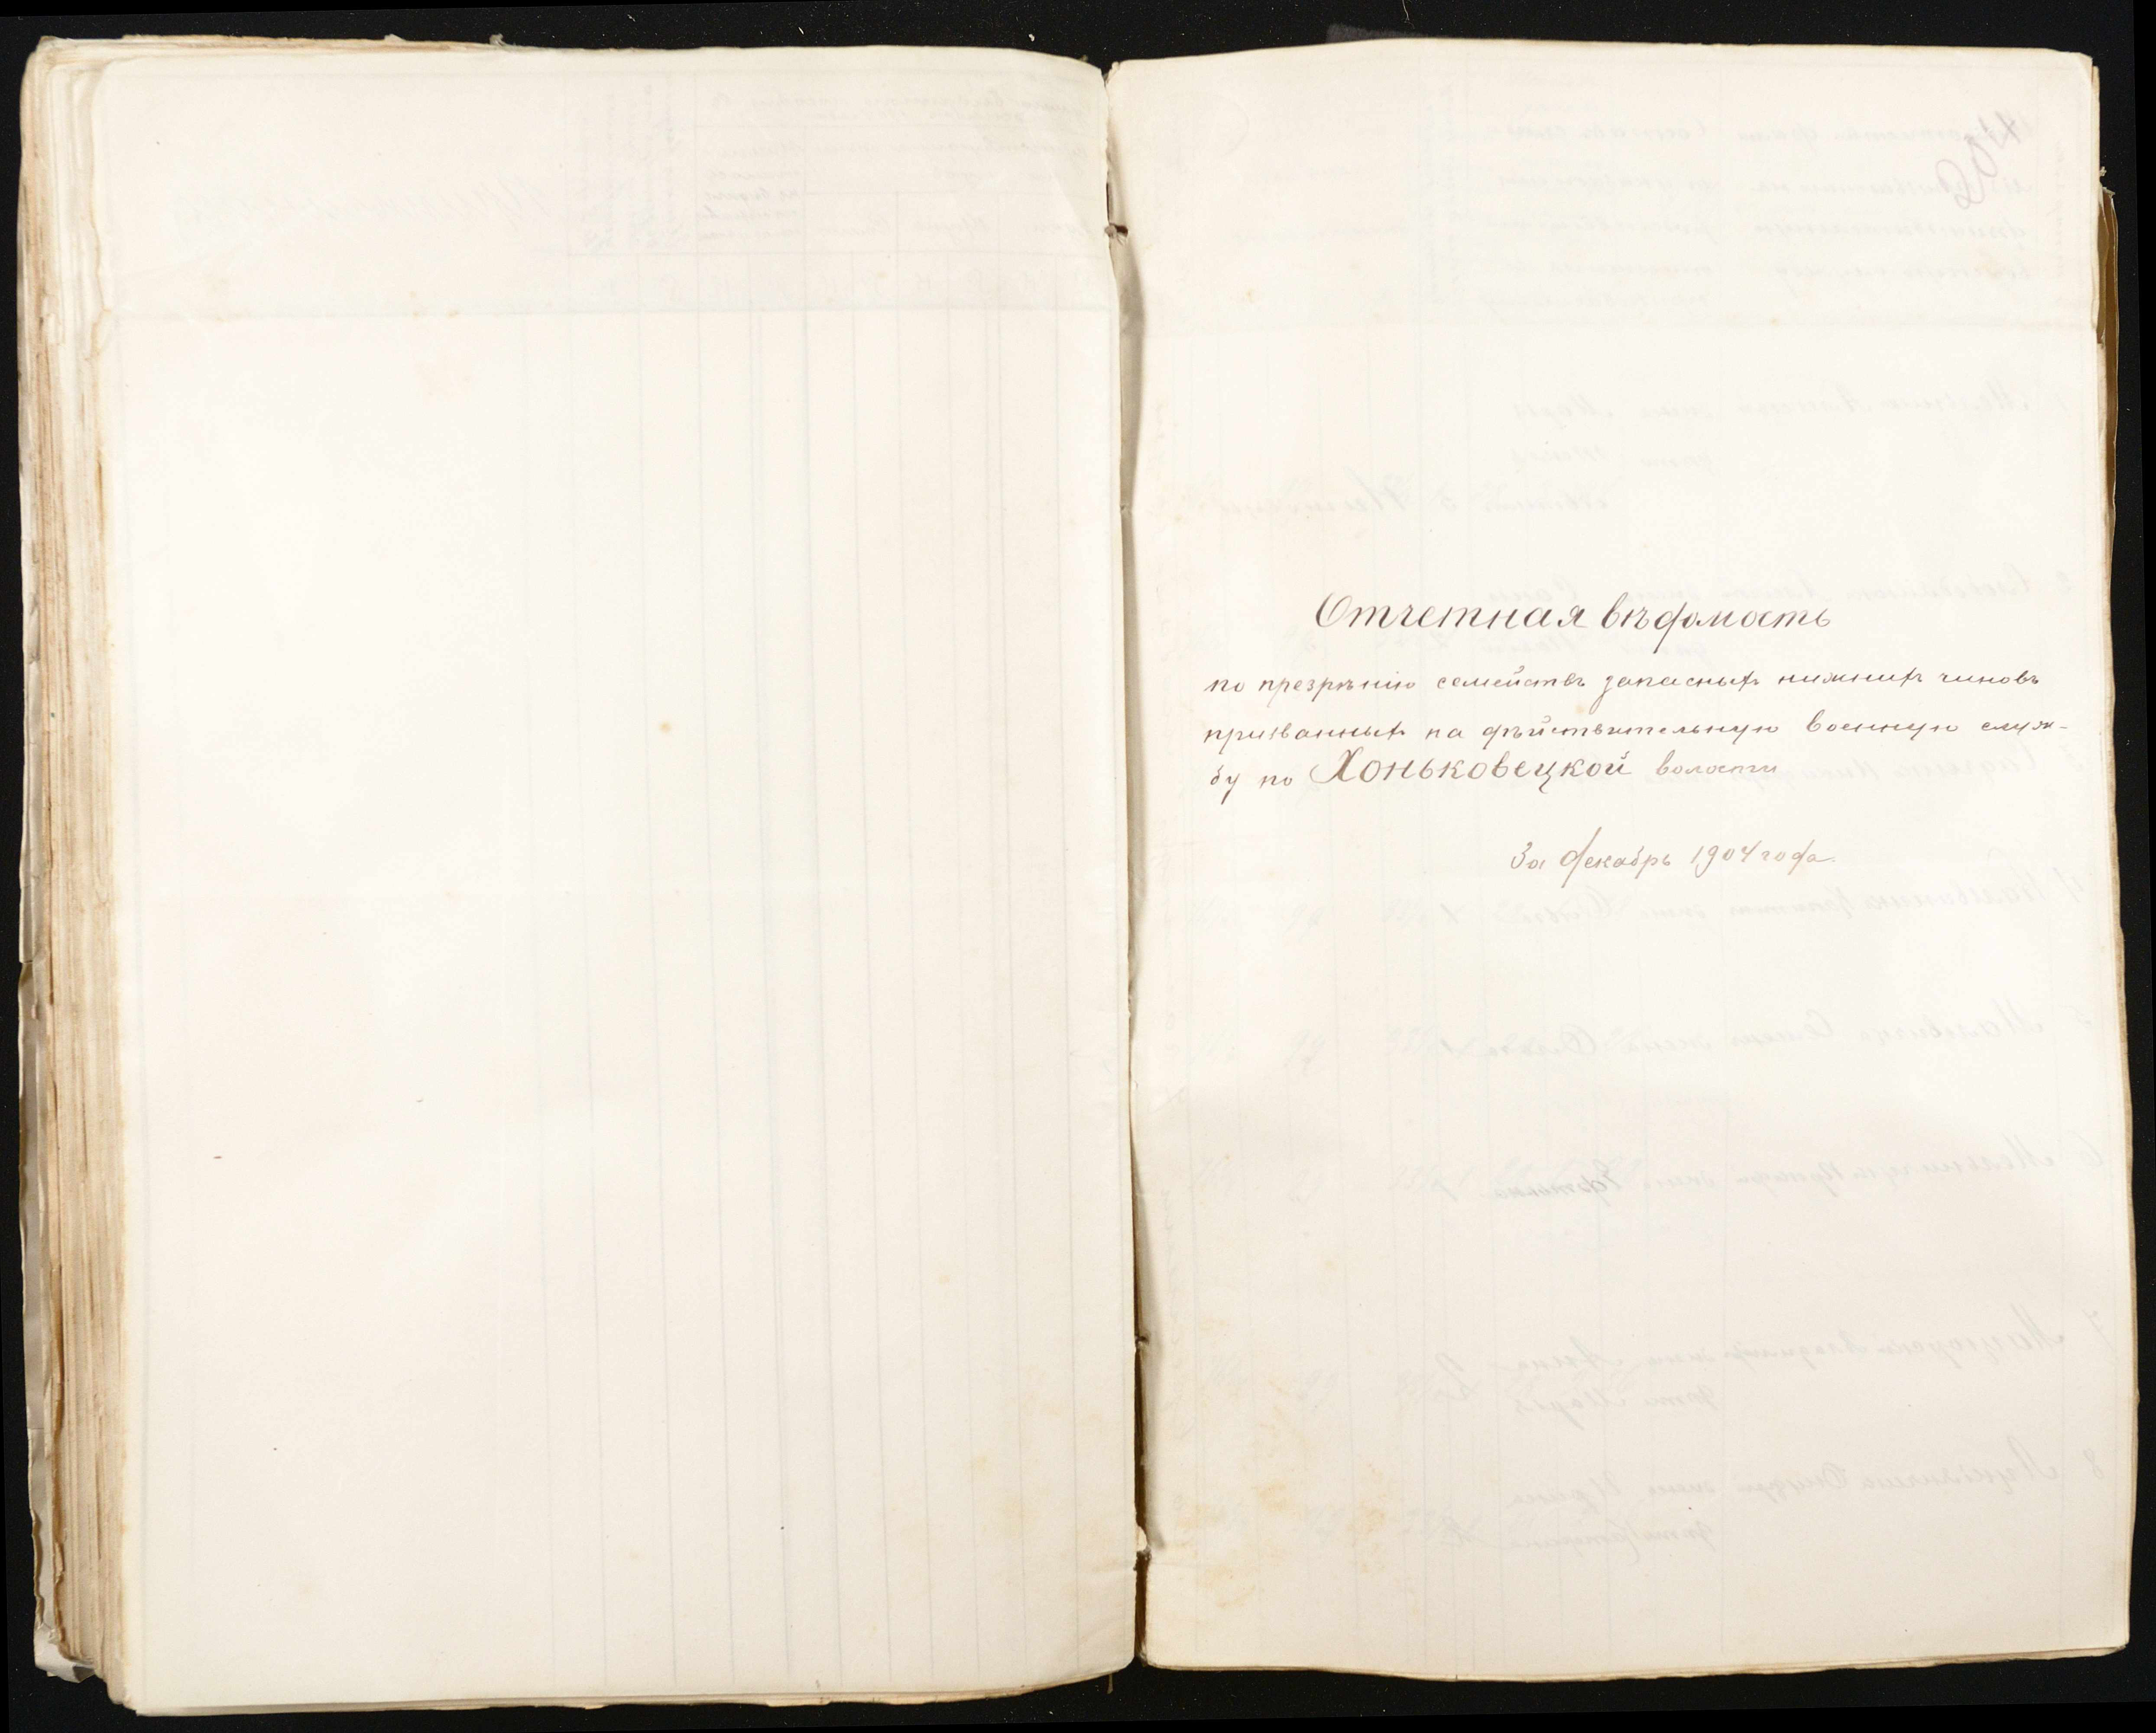 Отчетная вѣдомость
по презрѣнію семействъ запасныхъ нижнихъ чиновъ
призванныхъ на дѣйствительную военную служ-
бу по Хоньковецкой волости
За декабрь 1904 года.